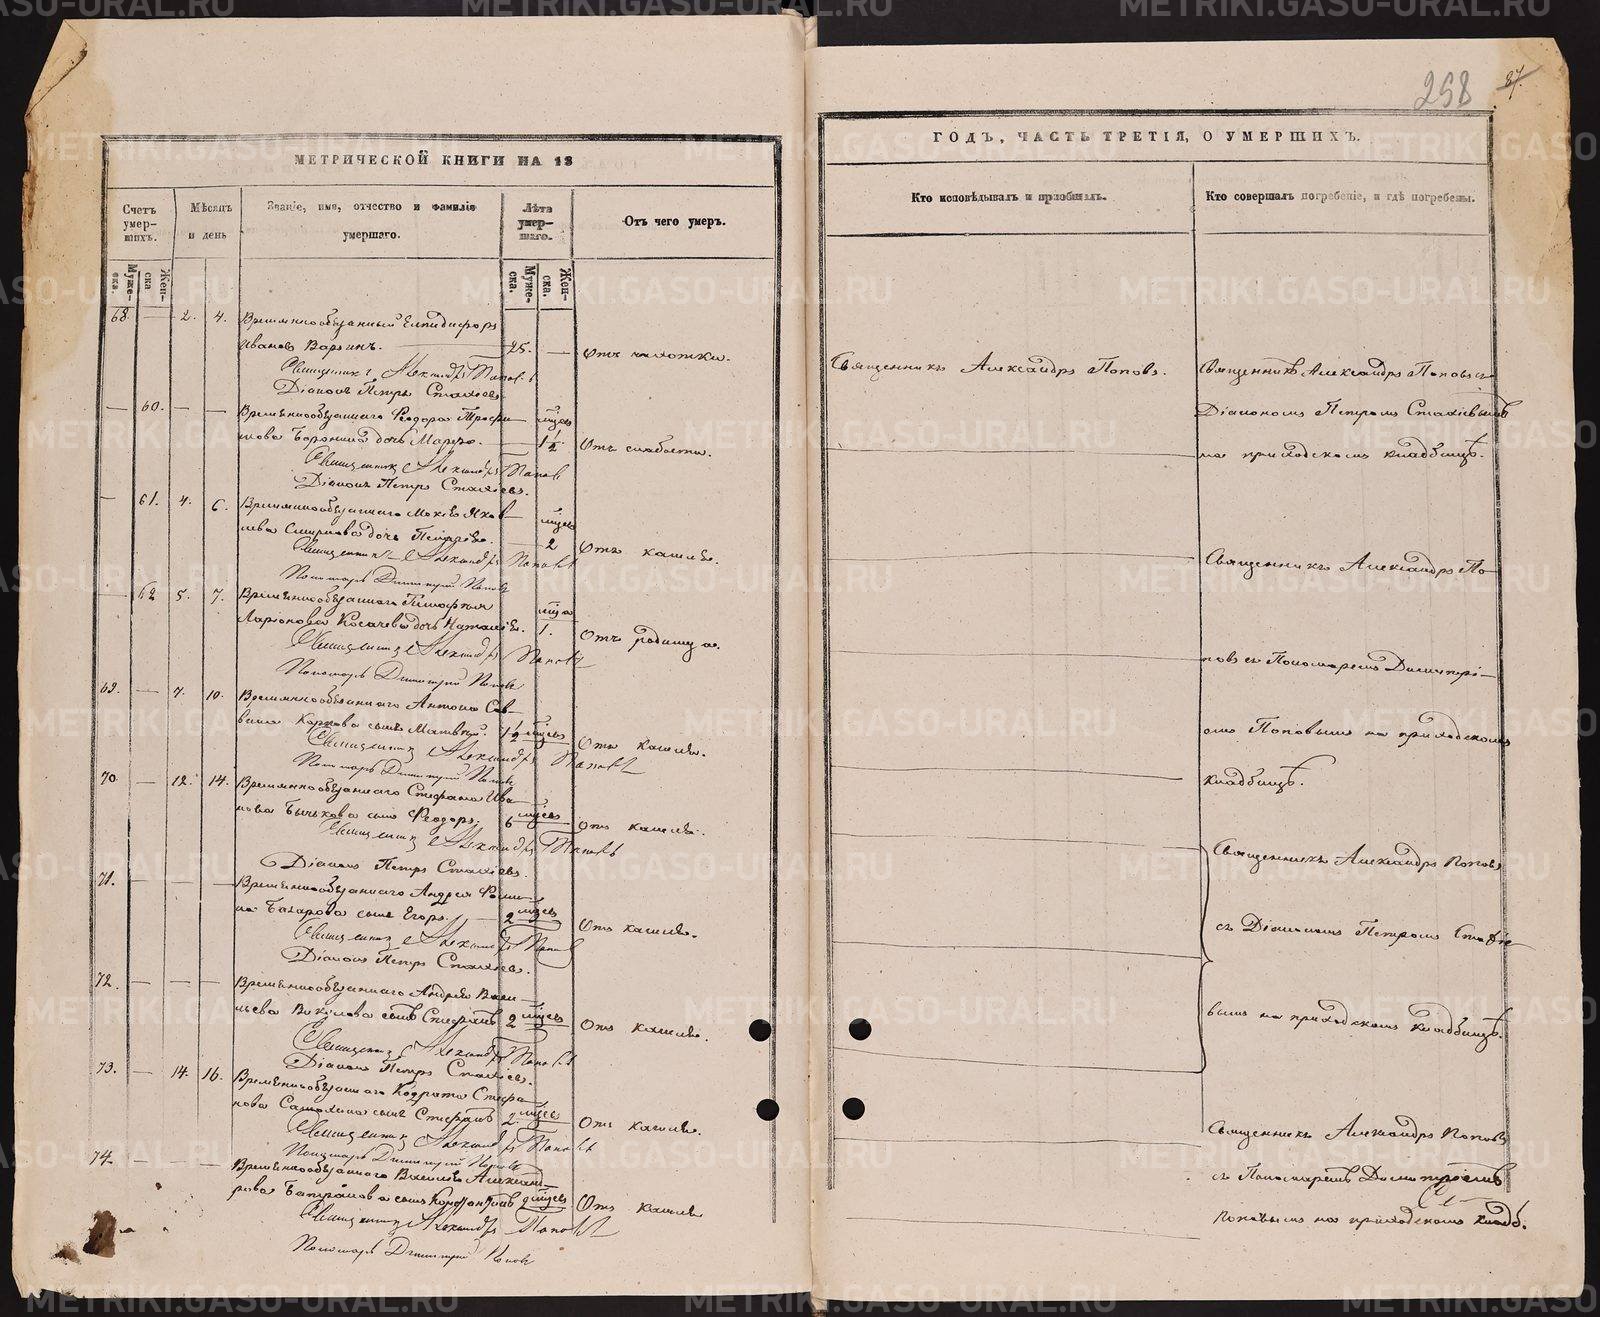 258 87.
МЕТРИЧЕСКОЙ КНИГИ НА 18
Счетъ умер-
шихъ.
Мѣсяцъ
и день
Званіе, имя, отчество и фамилія
умершаго.
Лѣта
умер-
шаго.
Отъ чего умеръ.
Муже-
ска.
Жен-
ска
Муже-
ска.
Жен-
ска.
68. — 2. 4. Временнообязанный Елпидифоръ
Иванов 25. — Отъ чахотки.
Священникъ Александръ Поповъ
Діаконъ Петръ Стахіевъ
— 60. — — Временнообязаннаго Феодора Трофи-
мова дочь Марѳа. — 1½ мѣсяц Отъ слабости.
Священникъ Александръ Поповъ
Діаконъ Петръ Стахіевъ.
— 61. 4. 6. Временнообязаннаго Яков-
лева Смирнова дочь — 2 Отъ кашля.
Священникъ Александръ Поповъ
Пономарь Димитрій Поповъ
— 62 5. 7. Временнообязаннаго Тимофея
Ларіонова Косачева дочь Наталія. 1. Отъ родимца.
Священникъ Александръ Поповъ
Пономарь Димитрій Поповъ
69. — 7. 10. Временнообязаннаго Антона Сав-
вина Карпова сынъ Матвѣй. 1½ мѣсяц Отъ кашля.
Священникъ Александръ Поповъ
Пономарь Димитрій Поповъ
70 — 12. 14. Временнообязаннаго Стефана Ива-
нова Бычкова сынъ Феодоръ. 6 Отъ кашля.
Священникъ Александръ Поповъ
Діаконъ Петръ Стахіевъ.
71. — — — Временнообязаннаго Андрея Фоми-
на сынъ Егоръ. — 2 Отъ кашля.
Священникъ Александръ Поповъ
Діаконъ Петръ Стахіевъ.
72. — — — Временнообязаннаго Андрея Васи-
льева Викулова сынъ Стефанъ 2 Отъ кашля.
Священникъ Александръ Поповъ
Діаконъ Петръ Стахіевъ.
73. — 14. 16. Временнообязаннаго Кодрата Стефа-
нова Самохина сынъ Стефанъ 2 Отъ кашля.
Священникъ Александръ Поповъ
Пономарь Димитрій Поповъ
74. — — — Временнообязаннаго Василія Александ-
рова сынъ Константинъ 2 Отъ кашля
Священникъ Александръ Поповъ
Пономарь Димитрій Поповъ
ГОДЪ, ЧАСТЬ ТРЕТІЯ, О УМЕРШИХЪ.
Кто исповѣдывалъ и пріобщалъ.
Кто совершалъ погребеніе, и гдѣ погребены.
Священникъ Александръ Поповъ.
Священникъ Александръ Поповъ съ
Діакономъ Петромъ Стахіевымъ
на приходскомъ кладбищѣ.
Священникъ Александръ По-
повъ съ Пономаремъ Димитрі-
емъ Поповымъ на приходскомъ
кладбищѣ.
Священникъ Александръ Поповъ
съ Діакономъ Петромъ Стахіе-
вымъ на приходскомъ кладбищѣ.
Священникъ Александръ Поповъ
съ Пономаремъ Димитріемъ
Поповымъ на приходскомъ кладб.
METRIKI.GASO-URAL.RU